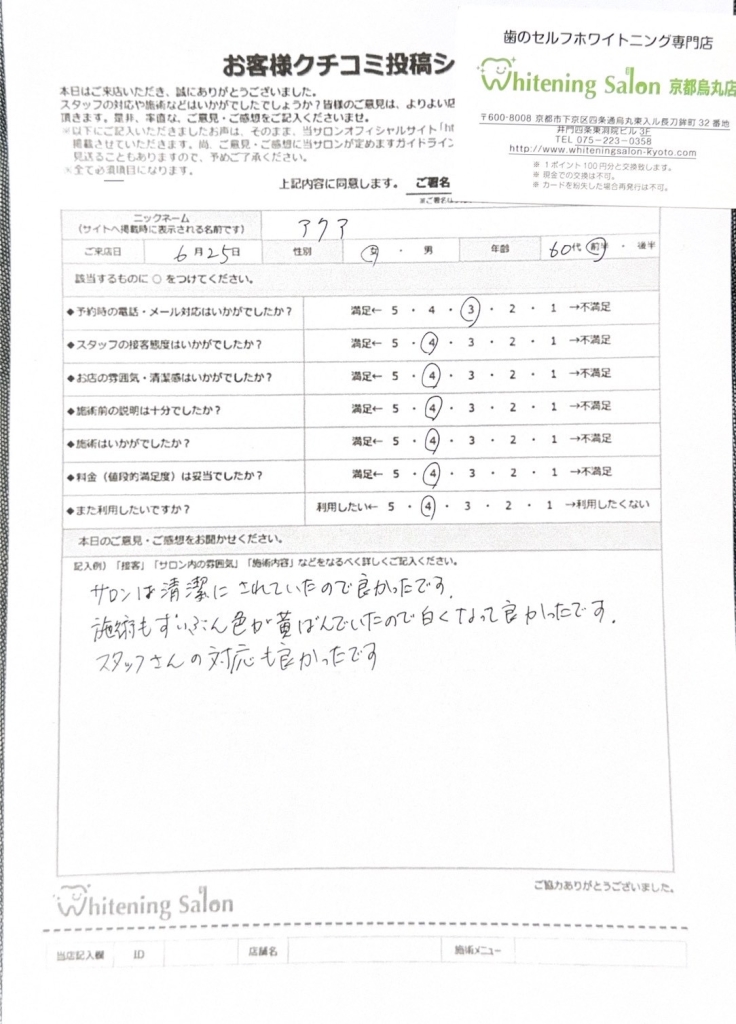 歯のセルフホワイトニング専門店
お客様クチコミ投稿シ
Whitening Salon 京都烏丸店
本日はご来店いただき、誠にありがとうございました。
スタッフの対応や施術などはいかがでしたでしょうか?皆様のご意見は、よりよい店
頂きます。是非、率直な、ご意見・ご感想をご記入くださいませ。
※以下にご記入いただきましたお声は、そのまま、当サロンオフィシャルサイト「ht
掲載させていただきます。尚、ご意見・ご感想に当サロンが定めますガイドライン
見送ることもありますので、予めご了承ください。
※全て必須項目になります。
〒600-8008 京都市下京区四条通烏丸東入ル長刀鉾町32番地
井門四条東洞院ビル 3F
TEL 075-223-0358
http://www.whiteningsalon-kyoto.com
※ 1ポイント100円分と交換致します。
※ 現金での交換は不可。
※ カードを紛失した場合再発行は不可。
上記内容に同意します。 ご署名
※ご署名は
ニックネーム
(サイトへ掲載時に表示される名前です) アクア
ご来店日 6月25日 性別 女 ・ 男 年齢 60代 前半 ・ 後半
該当するものに ○ をつけてください。
◆予約時の電話・メール対応はいかがでしたか? 満足← 5 ・ 4 ・ 3 ・ 2 ・ 1 →不満足
◆スタッフの接客態度はいかがでしたか? 満足← 5 ・ 4 ・ 3 ・ 2 ・ 1 →不満足
◆お店の雰囲気・清潔感はいかがでしたか? 満足← 5 ・ 4 ・ 3 ・ 2 ・ 1 →不満足
◆施術前の説明は十分でしたか? 満足← 5 ・ 4 ・ 3 ・ 2 ・ 1 →不満足
◆施術はいかがでしたか? 満足← 5 ・ 4 ・ 3 ・ 2 ・ 1 →不満足
◆料金(値段的満足度)は妥当でしたか? 満足← 5 ・ 4 ・ 3 ・ 2 ・ 1 →不満足
◆また利用したいですか? 利用したい← 5 ・ 4 ・ 3 ・ 2 ・ 1 →利用したくない
本日のご意見・ご感想をお聞かせください。
記入例)「接客」「サロン内の雰囲気」「施術内容」などをなるべく詳しくご記入ください。
サロンは清潔にされていたので良かったです.
施術もずいぶん色が黄ばんでいたので白くなって良かったです.
スタッフさんの対応も良かったです
ご協力ありがとうございました。
Whitening Salon
当店記入欄 ID 店舗名 施術メニュー